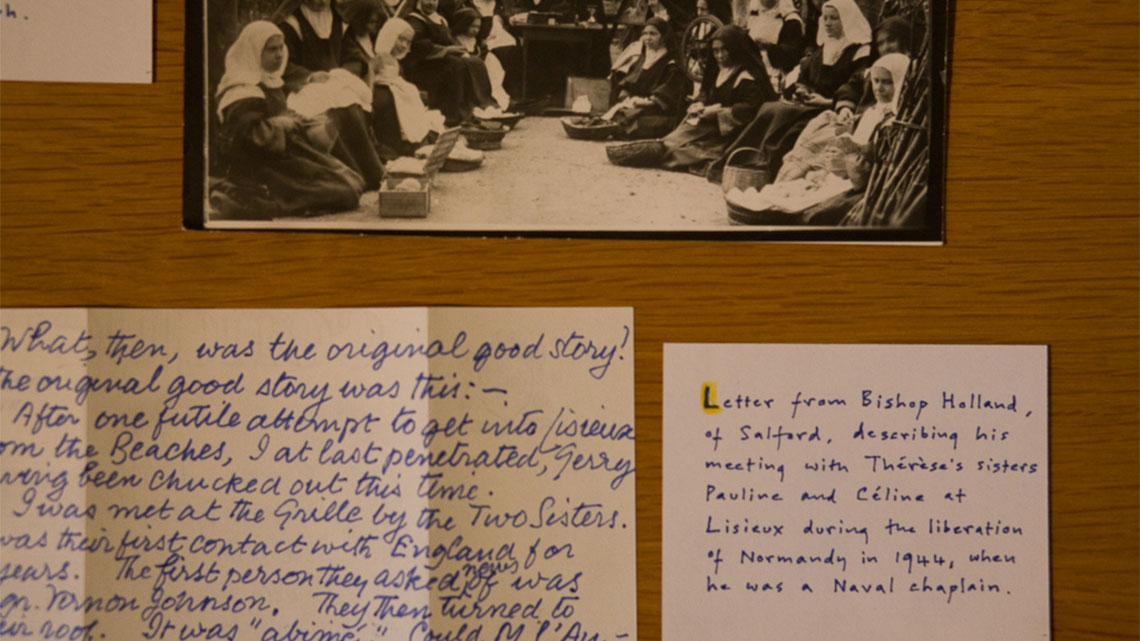 h.
What, then, was the original good story?
he original good story was this:—
After one futile attempt to get into Lisieux
om the Beaches, I at last penetrated, Gerry
ving been chucked out this time.
I was met at the Grille by the Two Sisters.
was their first contact with England for
years. The first person they asked news of was
gr. Vernon Johnson. They then turned to
eir roof. It was "abimé."
Letter from Bishop Holland,
of Salford, describing his
meeting with Thérèse's sisters
Pauline and Céline at
Lisieux during the liberation
of Normandy in 1944, when
he was a Naval chaplain.